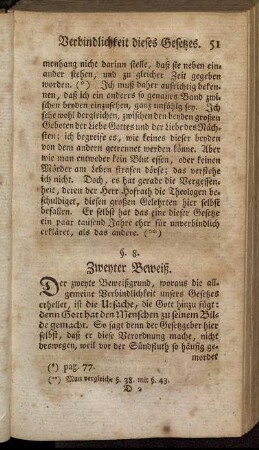 Verbindlichkeit dieses Gesetzes. 51
menhang nicht darian stelle, daß sie neben ein-
ander stehen, und zu gleicher Zeit gegeben
worden. (*) Ich muß daher aufrichtig beken-
nen, daß ich ein anderes so genaues Band zwi-
schen beyden einzusehen, ganz unfähig sey. Ich
sehe wohl dergleichen, zwischen den beyden großen
Geboten der Liebe Gottes und der Liebe des Näch-
sten; ich begreife es, wie keines dieser beyden
von dem andern getrennet werden könne. Aber
wie man entweder kein Blut essen, oder keinen
Mörder am Leben strafen dörfe; das verstehe
ich nicht. Doch, es hat gerade die Vergessen-
heit, deren der Herr Hofrath die Theologen be-
schuldiget, diesen großen Gelehrten hier selbst
befallen. Er selbst hat das eine dieser Gesetze
ein paar tausend Jahre eher für unverbindlich
erkläret, als das andere. (**)
§. 8.
Zweyter Beweiß.
Der zweyte Beweißgrund, woraus die all-
gemeine Verbindlichkeit unsers Gesetzes
erhellet, ist die Ursache, die Gott hinzu fügt:
denn Gott hat den Menschen zu seinem Bil-
de gemacht. So sagt denn der Gesetzgeber hier
selbst, daß er diese Verordnung mache, nicht
deswegen, weil vor der Sündfluth so häufig ge-
mordet
(*) pag. 77.
(**) Man vergleiche §. 38. mit §. 43.
D 2